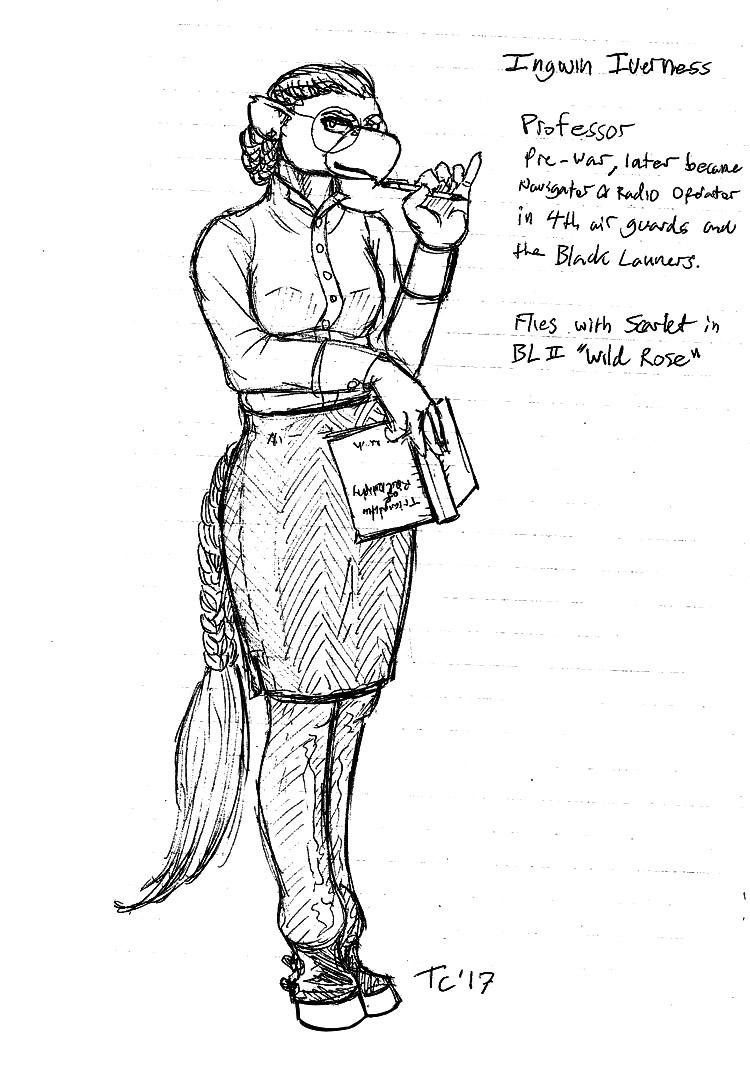 Ingwin Iverness
Professor
Pre-war, later became
Navigator & Radio Operator
in 4th air guards and
the Black Lanners.
Flies with Scarlet in
BL II "Wild Rose"
of
TC'17